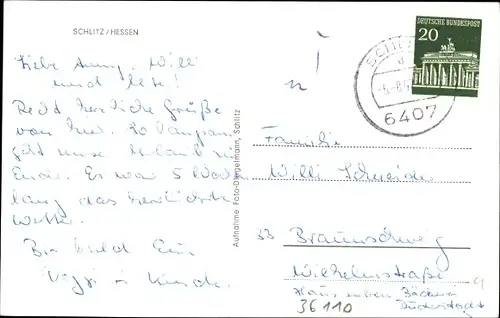 SCHLITZ/HESSEN
Liebe Anny, Willi
und
Recht herzliche Grüße
von hier. So langsam
geht unser Urlaub zu
Ende. Es war 5 Wochen
lang das herrlichste
Wetter.
Bis bald Eure
Aufnahme Foto-Diegelmann, Schlitz
DEUTSCHE BUNDESPOST
20
6407
Familie
Willi Schneider
33 Braunschweig
Wilhelmstraße 9
Haus neben Bäckerei
36110